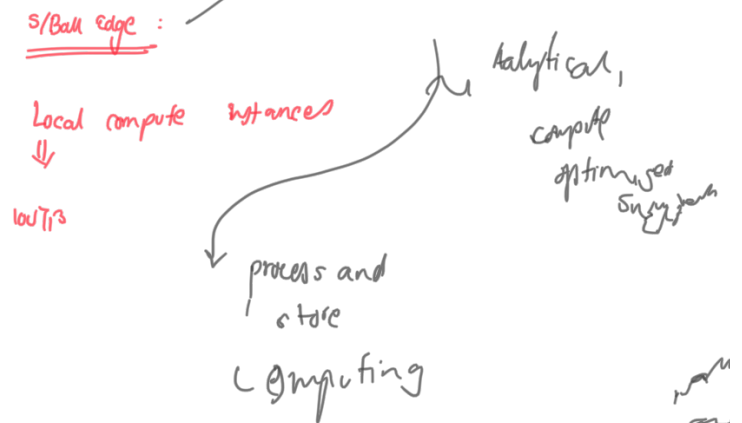 S/Ball Edge :
Local compute instances
Aalytical,
compute
optimized
process and
store
Computing